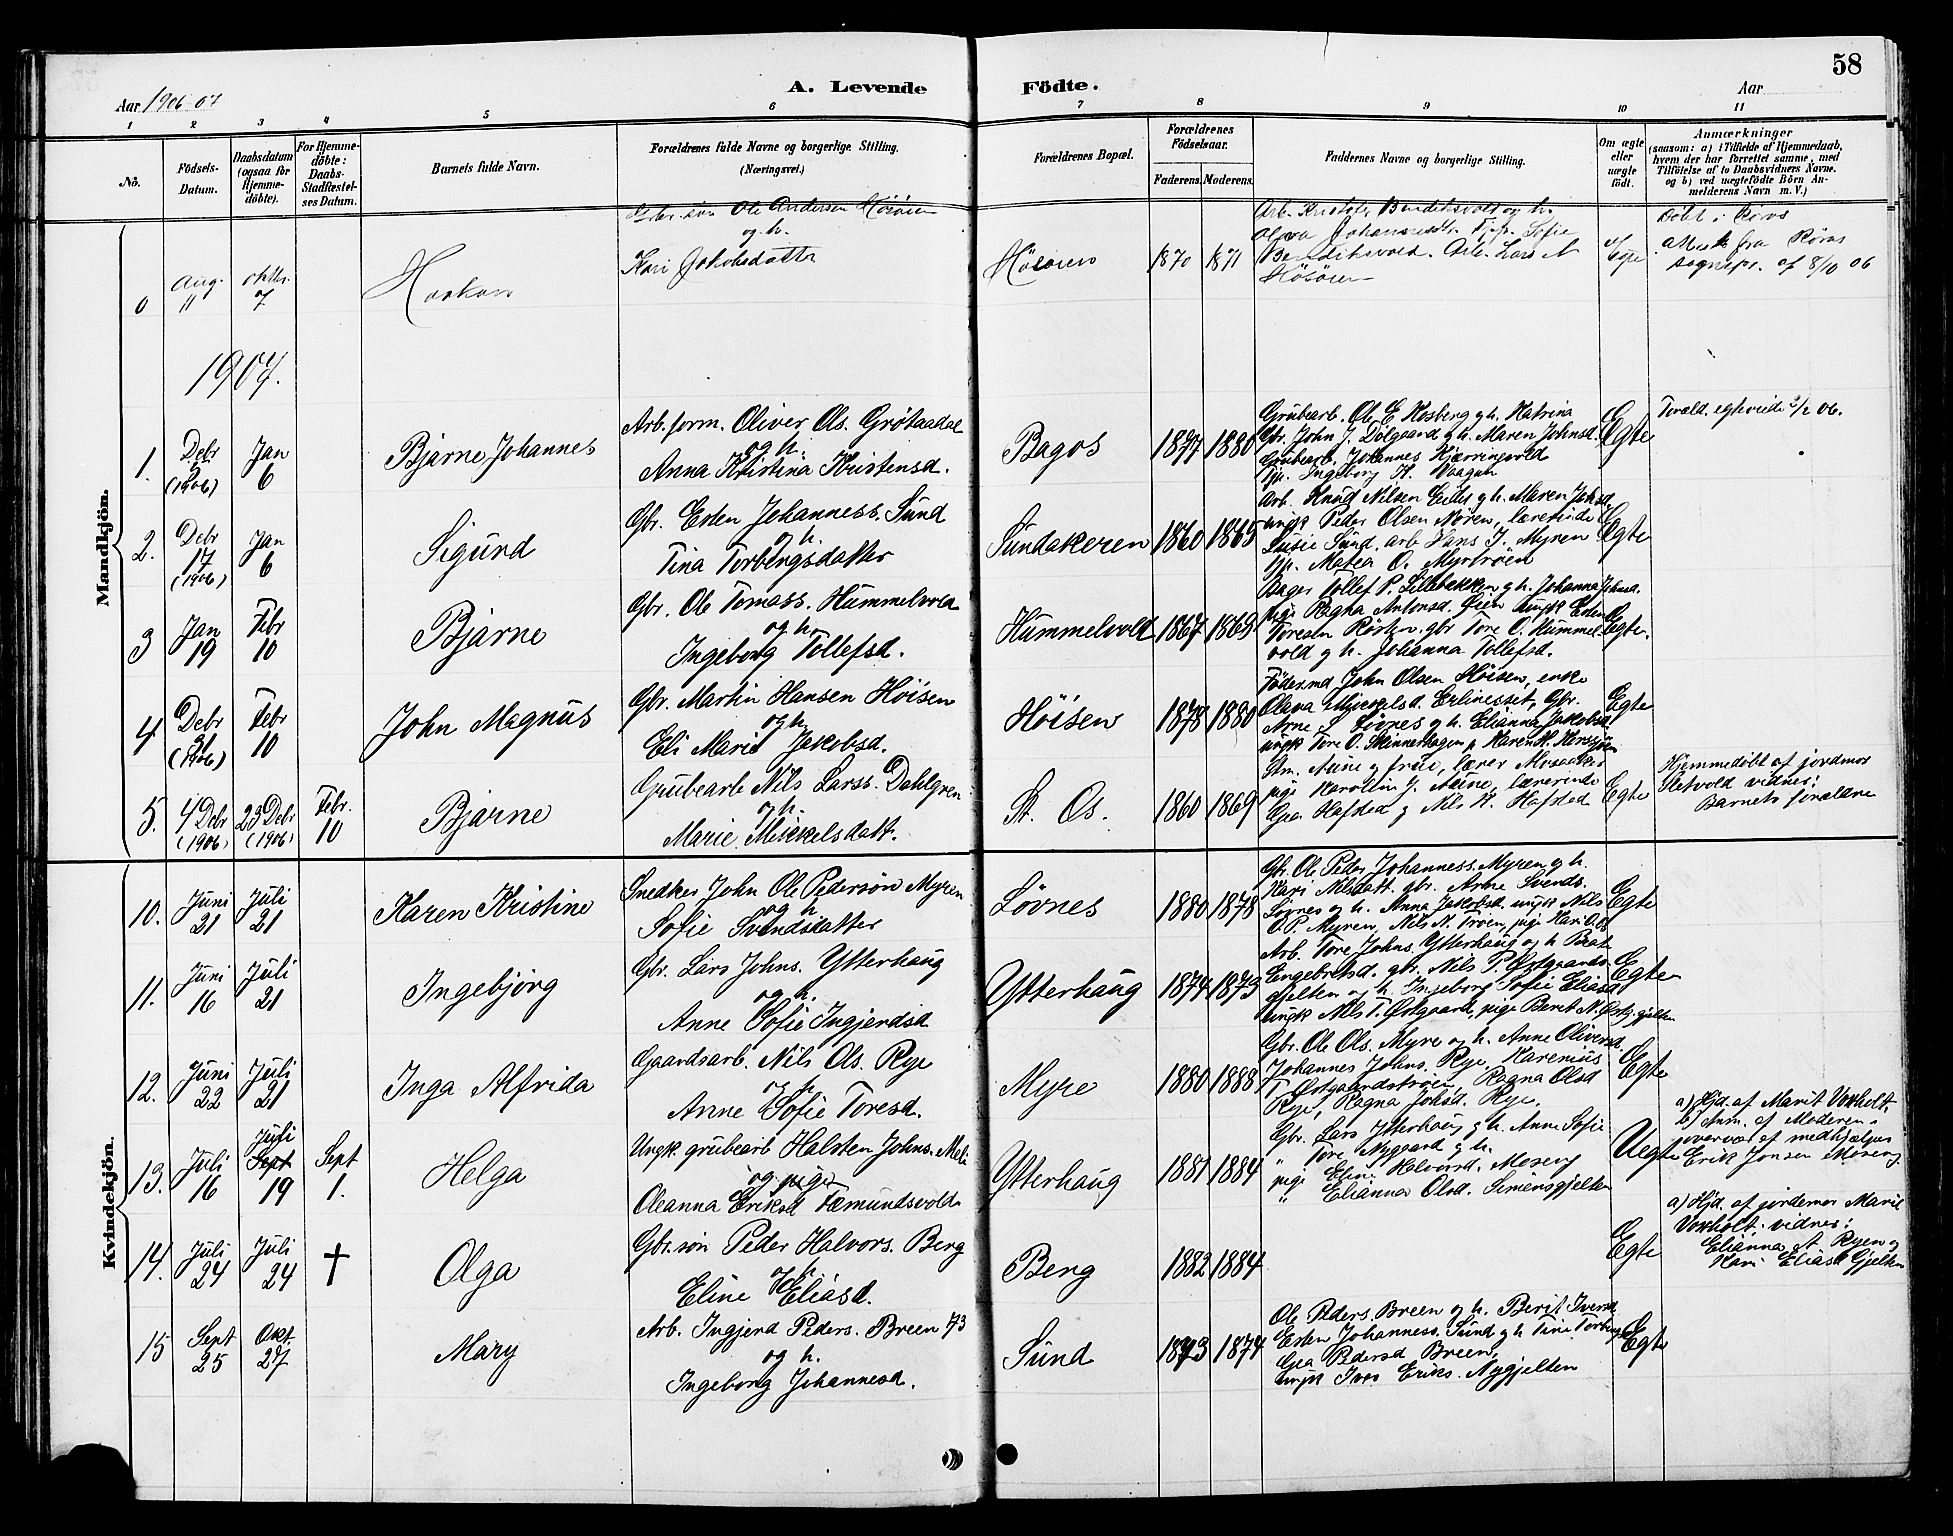 58
Aar 1906-07
A. Levende Födte.
Aar
1 2 3 4 5 6 7 8 9 10 11
No.
Födsels-Datum.
Daabsdatum (ogsaa for Hjemmedöbte).
For Hjemmedöbte: Daabs-Stadfæstelses Datum.
Barnets fulde Navn.
Forældrenes fulde Navne og borgerlige Stilling. (Næringsvei.)
Forældrenes Bopæl.
Forældrenes Födselsaar.
Faderens. Moderens.
Faddernes Navne og borgerlige Stilling.
Om ægte eller uægte födt.
Anmærkninger
(saasom: a) i Tilfælde af Hjemmedaab, hvem der har forrettet samme, med Tilföielse af to Daabsvidners Navne. og b) ved uægtefödte Börn Anmelderens Navn m. V.)
Mandkjön.
0 Aug. 11 oktbr. 7 Haakon
Gbr. søn Ole Andersen Høsøien
og h.
Kari Jakobsdatter
Høsøien 1870 1871
Olava Johannesdtr.
Høsøien
Døbt i Røros
Røros
sognepr. af 8/10 06
1907.
1. Debr (1906) Jan 6 Bjarne Johannes
Arb. form. Oliver Ols. Grøtaadal
og h.
Anna Kristina Kristensd.
Bagos 1877 1880
Grubearb. Ole E. Hosberg g h. Katrina
Gbr. John J. Dølgaard g h. Maren Johnsd.
Grubearb. Johannes Kjærringvold
pp. Ingeborg H. Vaagan
Egte
Foræld. egteviede 2/2 06.
2. Debr 17 (1906) Jan 6 Sigurd
Gbr. Esten Johanness. Sund
og h.
Tina Torbergsdatter
Sundakeren 1860 1865
Arb. Knud Nilsen g h. Maren Johsd
ungk Peder Olsen Møren, lærerinde
Susie Sund, arb Hans J. Myren
pp. Matea O. Myrtrøen
Egte
3 Jan 19 Febr 10 Bjarne
Gbr. Ole Tomass. Hummelvold
og h.
Ingeborg Tollefsd.
Hummelvold 1867 1865
Bager Tollef P. Lillebekken g h. Johanna Johnsd.
pige Ragna Antonsd. Øien ungk Esten
Røsten gbr Tore O. Hummel-
vold g h. Johanna Tollefsd.
Egte.
4 Debr 31 (1906) Febr 10 John Magnus
Gbr. Martin Hansen Høisen
og h.
Eli Marie Jakobsd.
Høisen 1878 1880
Føderaad John Olsen Høisen, enke
Olava Mikkelsd. Erlinesset, Gbr.
Arne S. Løvnes g h. Elianna Jakobsd
ungk Tore O. Skinnerhagen p Karen H. Hersjøen
Egte
5. 4 Debr (1906) 23 Debr (1906) Febr. 10 Bjarne
Grubearb Nils Larss. Dahlgren
og h.
Marie Mikkelsdatt.
St. Os. 1860 1869
Stm. Aune g frue, lærer Mosaaker
pige Karoline J. Aune, lærerinde
Gea Hafsted g Nils H. Hafsted
Egte
Hjemmedøbt af jordmor
Sletvold vidner:
Barnets forældre
Kvindekjön.
10. Juni 21 Juli 21 Karen Kristine
Snedker John Ole Pedersøn Myren
og h.
Sofie Svendsdatter
Løvnes 1880 1878
Gbr. Ole Peder Johanness. Myren g h.
Kari Nilsdatt. gbr. Arne Svends.
Løvnes g h. Anna Jakobsd. ungk Nils
O. P. Myren, Nils N. Trøen, pige Kari O. Os
Egte
11. Juni 16 Juli 21 Ingebjørg
Gbr. Lars Johns. Ytterhaug
og h.
Anne Sofie Ingjerdsd
Ytterhaug 1874 1873
Arb. Tore Johns. Ytterhaug og h Beat
Engebretsd. gbr. Nils P. Østgaards-
gjelten og h. Ingeborg Sofie Eliasd
ungk Nils T. Østgaard, pige Beret N. Østg. gjelten
Egte
12. Juni 22 Juli 21 Inga Alfrida
Gaardsarb. Nils Ols. Rye
og h.
Anne Sofie Toresd.
Myre 1880 1888
Gbr. Ole Ols. Myre og h. Anne Oliversd.
Johannes Johns. Rye, Karenius
T. Østgaardstrøen, Ragna Olsd
Rye, Ragna Johsd. Rye.
Egte
13. Juli 16 Juli Sept 19 Sept 1. Helga
Ungk. grubearb Halsten Johns. Mele
og pige
Oleanna Eriksd Fæmundsvold
Ytterhaug 1881 1884
Gbr. Lars Ytterhaug g h. Anne Sofie
" Tore Nygaard g h.
pige Eline Halvorsd. Moseng
" Elianna Olsd. Simensgjelten
Uegte
a) Hjd. af Marit Voxholt,
b) Anm. af Moderen i
overvær af medhjælper
Erik Jonsen Moseng
14. Juli 24 Juli 24 † Olga
Gbr. søn Peder Halvors. Berg
og h.
Eline Eliasd.
Berg 1882 1884
Egte
a) Hjd. af jordemor Marit
Voxholt. vidner:
Elianna A. Ryen g
Kari Eliasd Gjelten
15 Sept 25 Okt. 27 Mary
Arb. Ingjerd Peders. Breen 73
og h.
Ingeborg Johannesd.
Sund 1873 1874
Ole Peders. Breen og h. Berit Iversd.
Esten Johanness. Sund g h Tina Torbergsd
Gea Pedersd Breen,
ungk Iver Eriks. Nygjelten
Egte